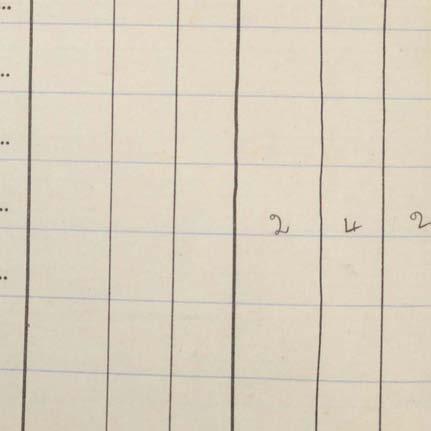 ..
..
..
.. 2 4 2
..